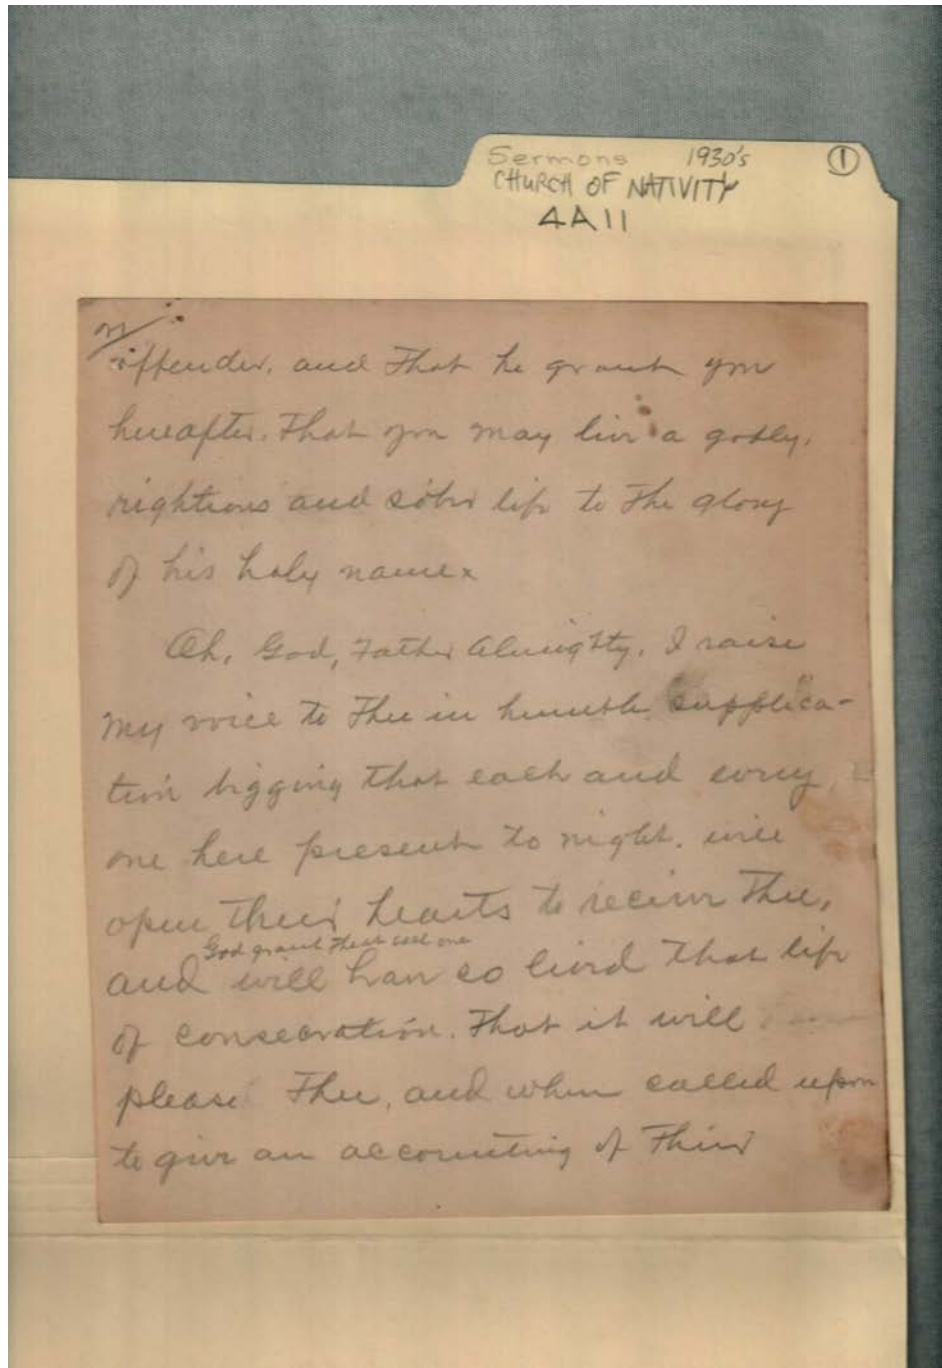 Sermons 1930's ①
CHURCH OF NATIVITY
4A11
offender, and that he grant you
hereafter. that you may live a godly,
righteous and sober life to the glory
of his holy name x
Oh, God, Father Almighty, I raise
my voice to Thee in humble supplica-
tion begging that each and every
one here present to night, will
open their hearts to receive Thee,
God grant that each one
and will have so lived that life
of consecration. That it will
please Thee, and when called upon
to give an accounting of their